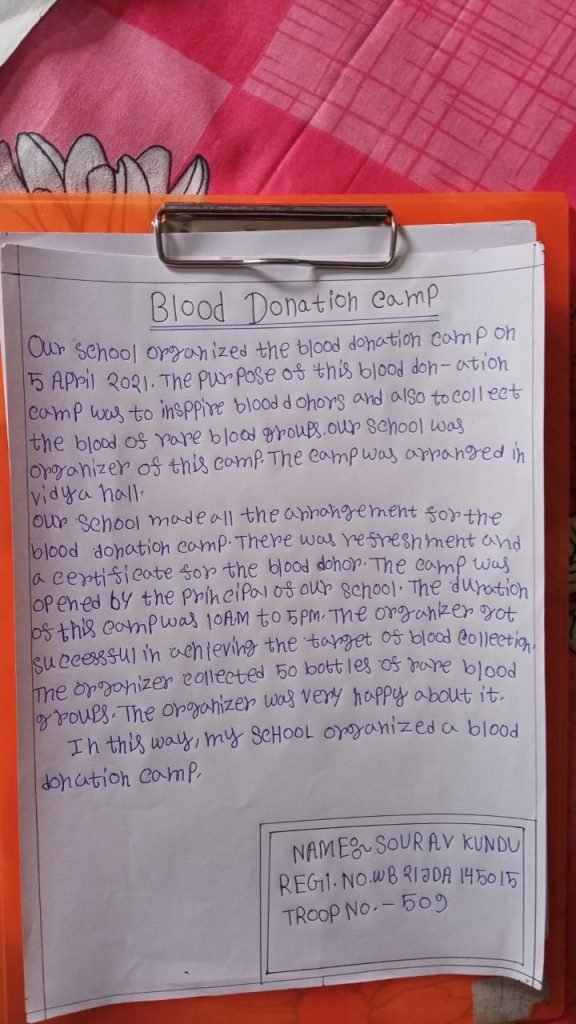 Blood Donation camp
Our school organized the blood donation camp on
5 April 2021. The purpose of this blood don-ation
camp was to insppire blood donors and also to collect
the blood of rare blood groups. our school was
organizer of this camp. The camp was arranged in
vidya hall.
our school made all the arrangement for the
blood donation camp. There was refreshment and
a certificate for the blood donor. The camp was
opened by the principal of our school. The duration
of this camp was 10AM to 5PM. The organizer got
successful in achieving the target of blood collection.
The organizer collected 50 bottles of rare blood
groups. The organizer was very happy about it.
In this way, my SCHOOL organized a blood
donation camp.
NAME:- SOURAV KUNDU
REG1. NO. WB 21JDA 145015
TROOP NO. - 509